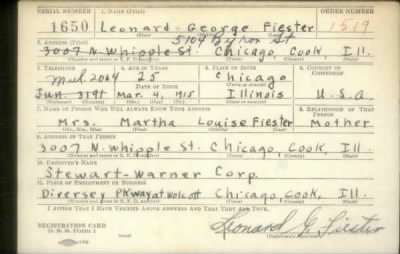 SERIAL NUMBER 1. NAME (Print) ORDER NUMBER
1650 Leonard George Fiester 1519
5104 Byron St.
2. ADDRESS (Print)
3007 N. Whipple St. Chicago, Cook, Ill.
3. TELEPHONE 4. AGE IN YEARS 5. PLACE OF BIRTH 6. COUNTRY OF CITIZENSHIP
Mul 2064 25 Chicago
DATE OF BIRTH
Jun. 3191 Mar. 4, 1915 Illinois U.S.A.
7. NAME OF PERSON WHO WILL ALWAYS KNOW YOUR ADDRESS 8. RELATIONSHIP OF THAT PERSON
Mrs. Martha Louise Fiester Mother
(Mr., Mrs., Miss) (First) (Middle) (Last)
9. ADDRESS OF THAT PERSON
3007 N. Whipple St. Chicago, Cook, Ill.
10. EMPLOYER'S NAME
Stewart-Warner Corp.
11. PLACE OF EMPLOYMENT OR BUSINESS
Diversey Pkway at Wolcott Chicago, Cook, Ill.
I AFFIRM THAT I HAVE VERIFIED ABOVE ANSWERS AND THAT THEY ARE TRUE.
REGISTRATION CARD
D. S. S. Form 1
Leonard G. Fiester